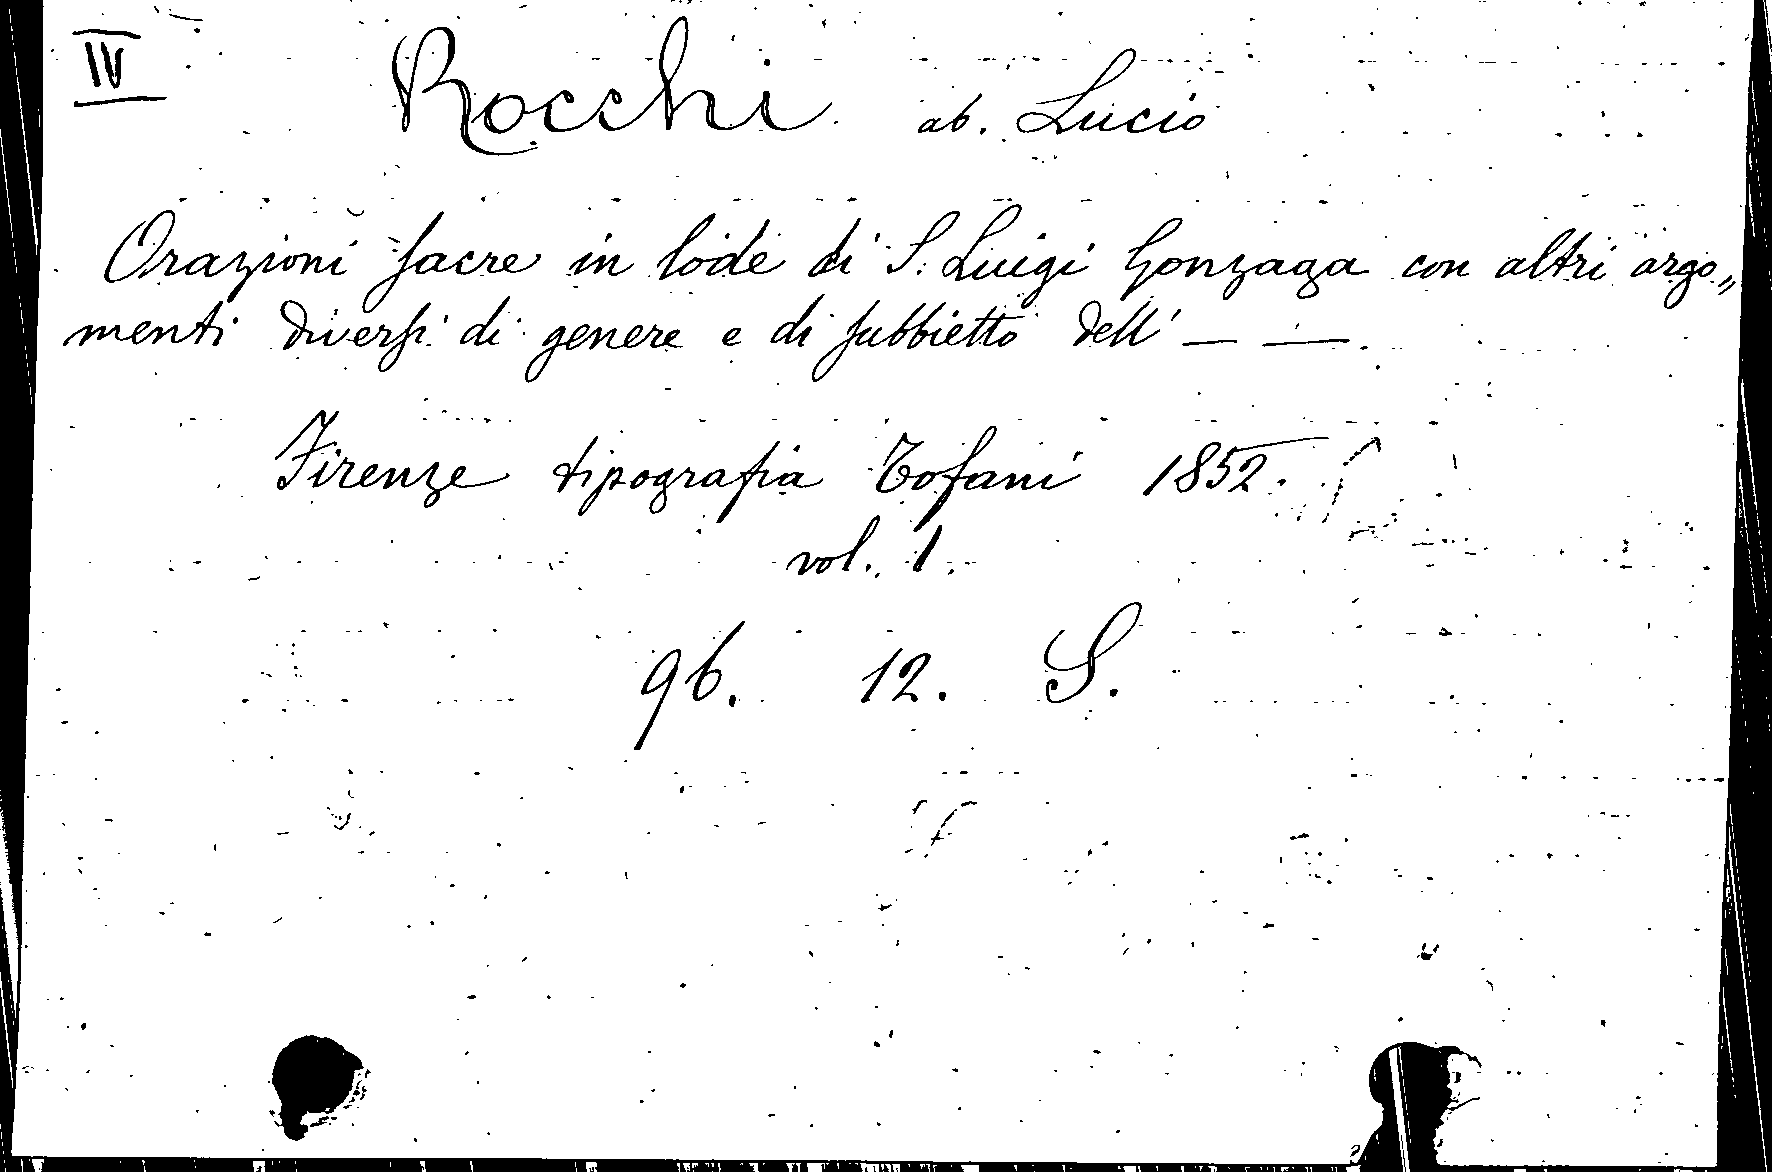 IV
Rocchi ab. Lucio
Orazioni sacre in lode di S. Luigi Gonzaga con altri argo„
menti diversi di genere e di subbietto dell' — —.
Firenze tipografia Tofani 1852.
vol. 1.
96. 12. S.